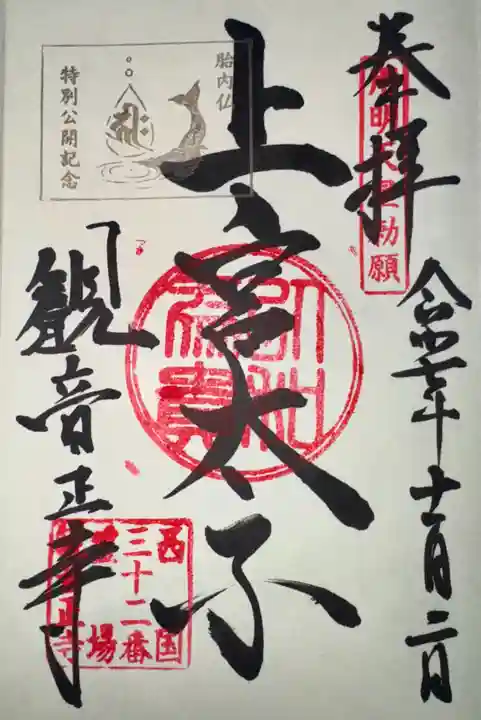 奉拝
勅願
令和七年十一月二日
胎内仏
特別公開記念
上宮太子
観音正寺
西国
三十二番
霊場
観音正寺